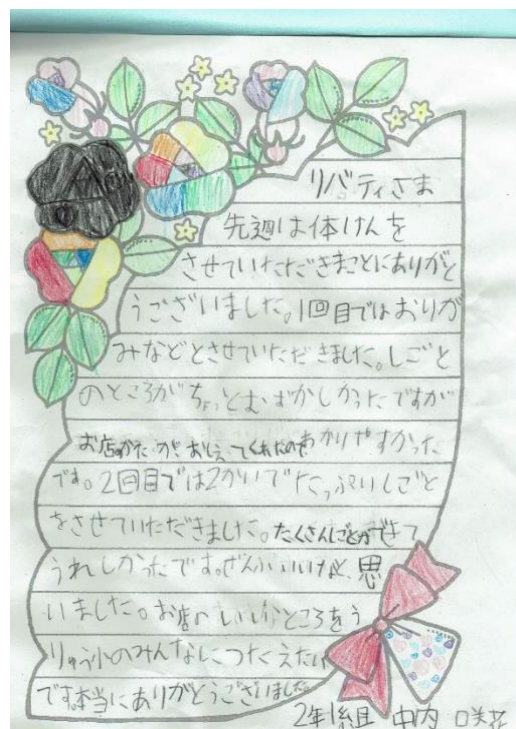 リバティさま
先週は体けんを
させていただきまことにありがと
うございました。1回目ではおりが
みなどとさせていただきました。しごと
のところがちょっとむずかしかったですが
お店のかたが、おしえてくれたのでわかりやすかった
です。2回目では2かいでたっぷりしごと
をさせていただきました。たくさんしごとができて
うれしかったです。ぜんぶいいけど、思
いました。お店のいいなところをう
りゅう小のみんなにつたえたい
です。本当にありがとうございました。
2年1組 中内 咲花